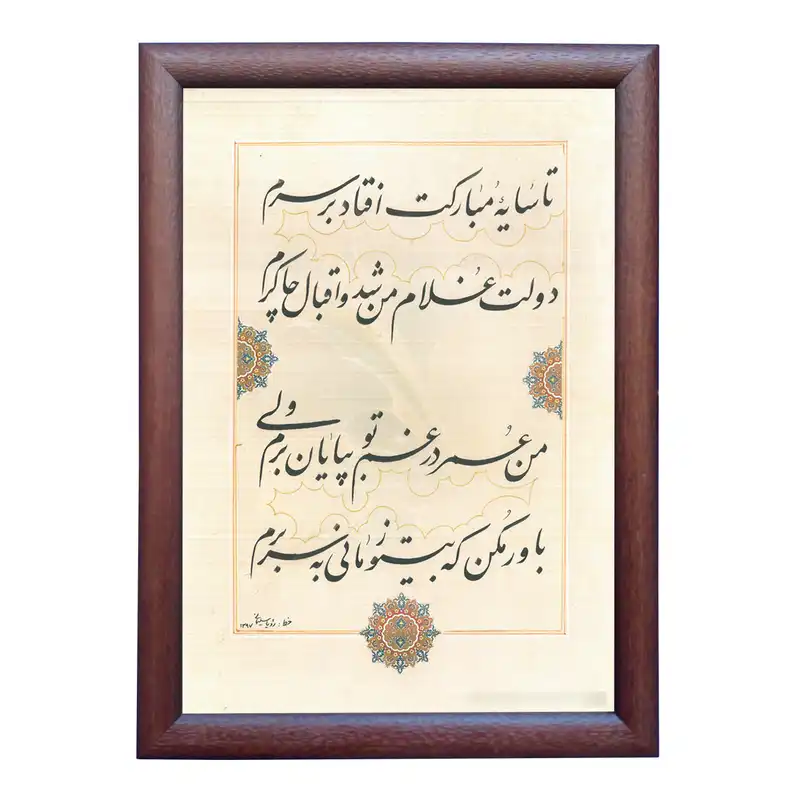 تا سایهٔ مبارکت افتاد بر سرم
دولت غلام من شد و اقبال چاکرم
من عمر در غم تو بپایان برم ولی
باور مکن که بیتو زمانی به سر برم
خط : ۱۳۹۷